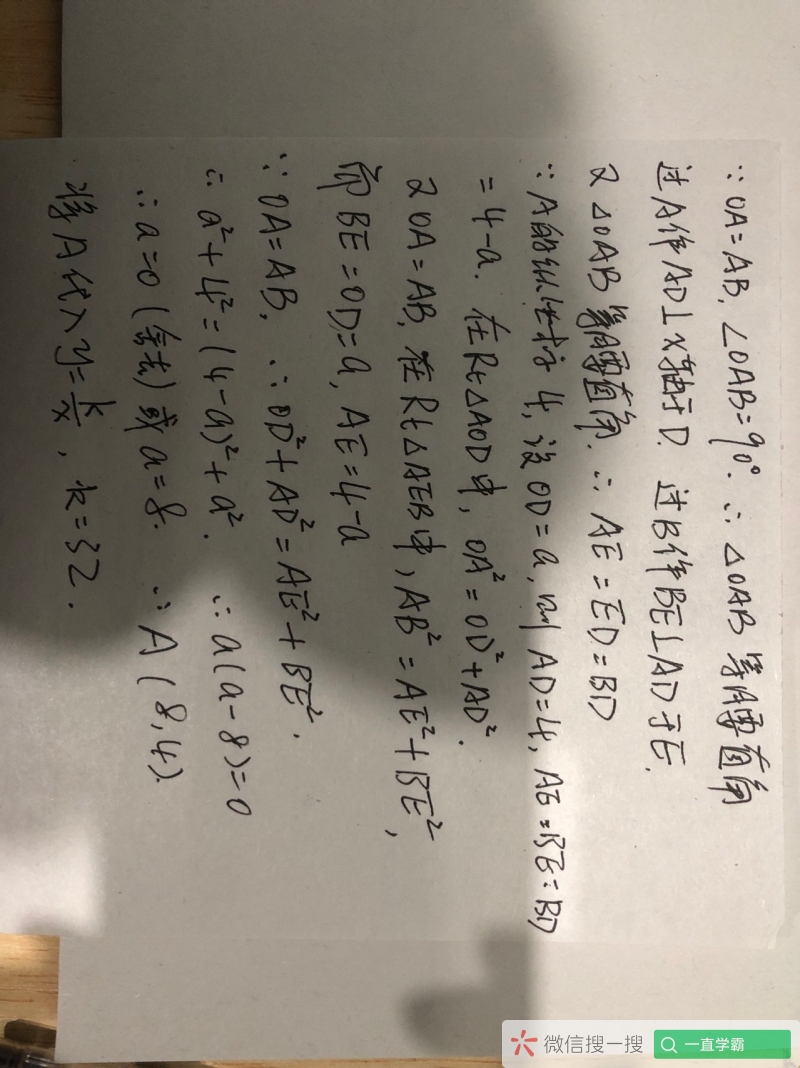 ∵ OA=AB, ∠OAB=90°. ∴ △OAB 等腰直角
过A作AD⊥x轴于D. 过B作BE⊥AD于E.
又△OAB 等腰直角. ∴ AE=ED=BD
∵ A的纵坐标为4, 设OD=a, 则AD=4, AE=BE=BD
=4-a. 在Rt△AOD中, OA²=OD²+AD².
又OA=AB, 在Rt△AEB中, AB²=AE²+BE²,
而BE=OD=a, AE=4-a
∵ OA=AB, ∴ OD²+AD²=AE²+BE².
∴ a²+4²=(4-a)²+a². ∴ a(a-8)=0
∴ a=0(舍去)或a=8. ∴ A(8,4).
将A代入y=k/x, k=32.
微信搜一搜
一直学霸